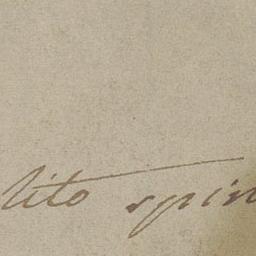 lito spin